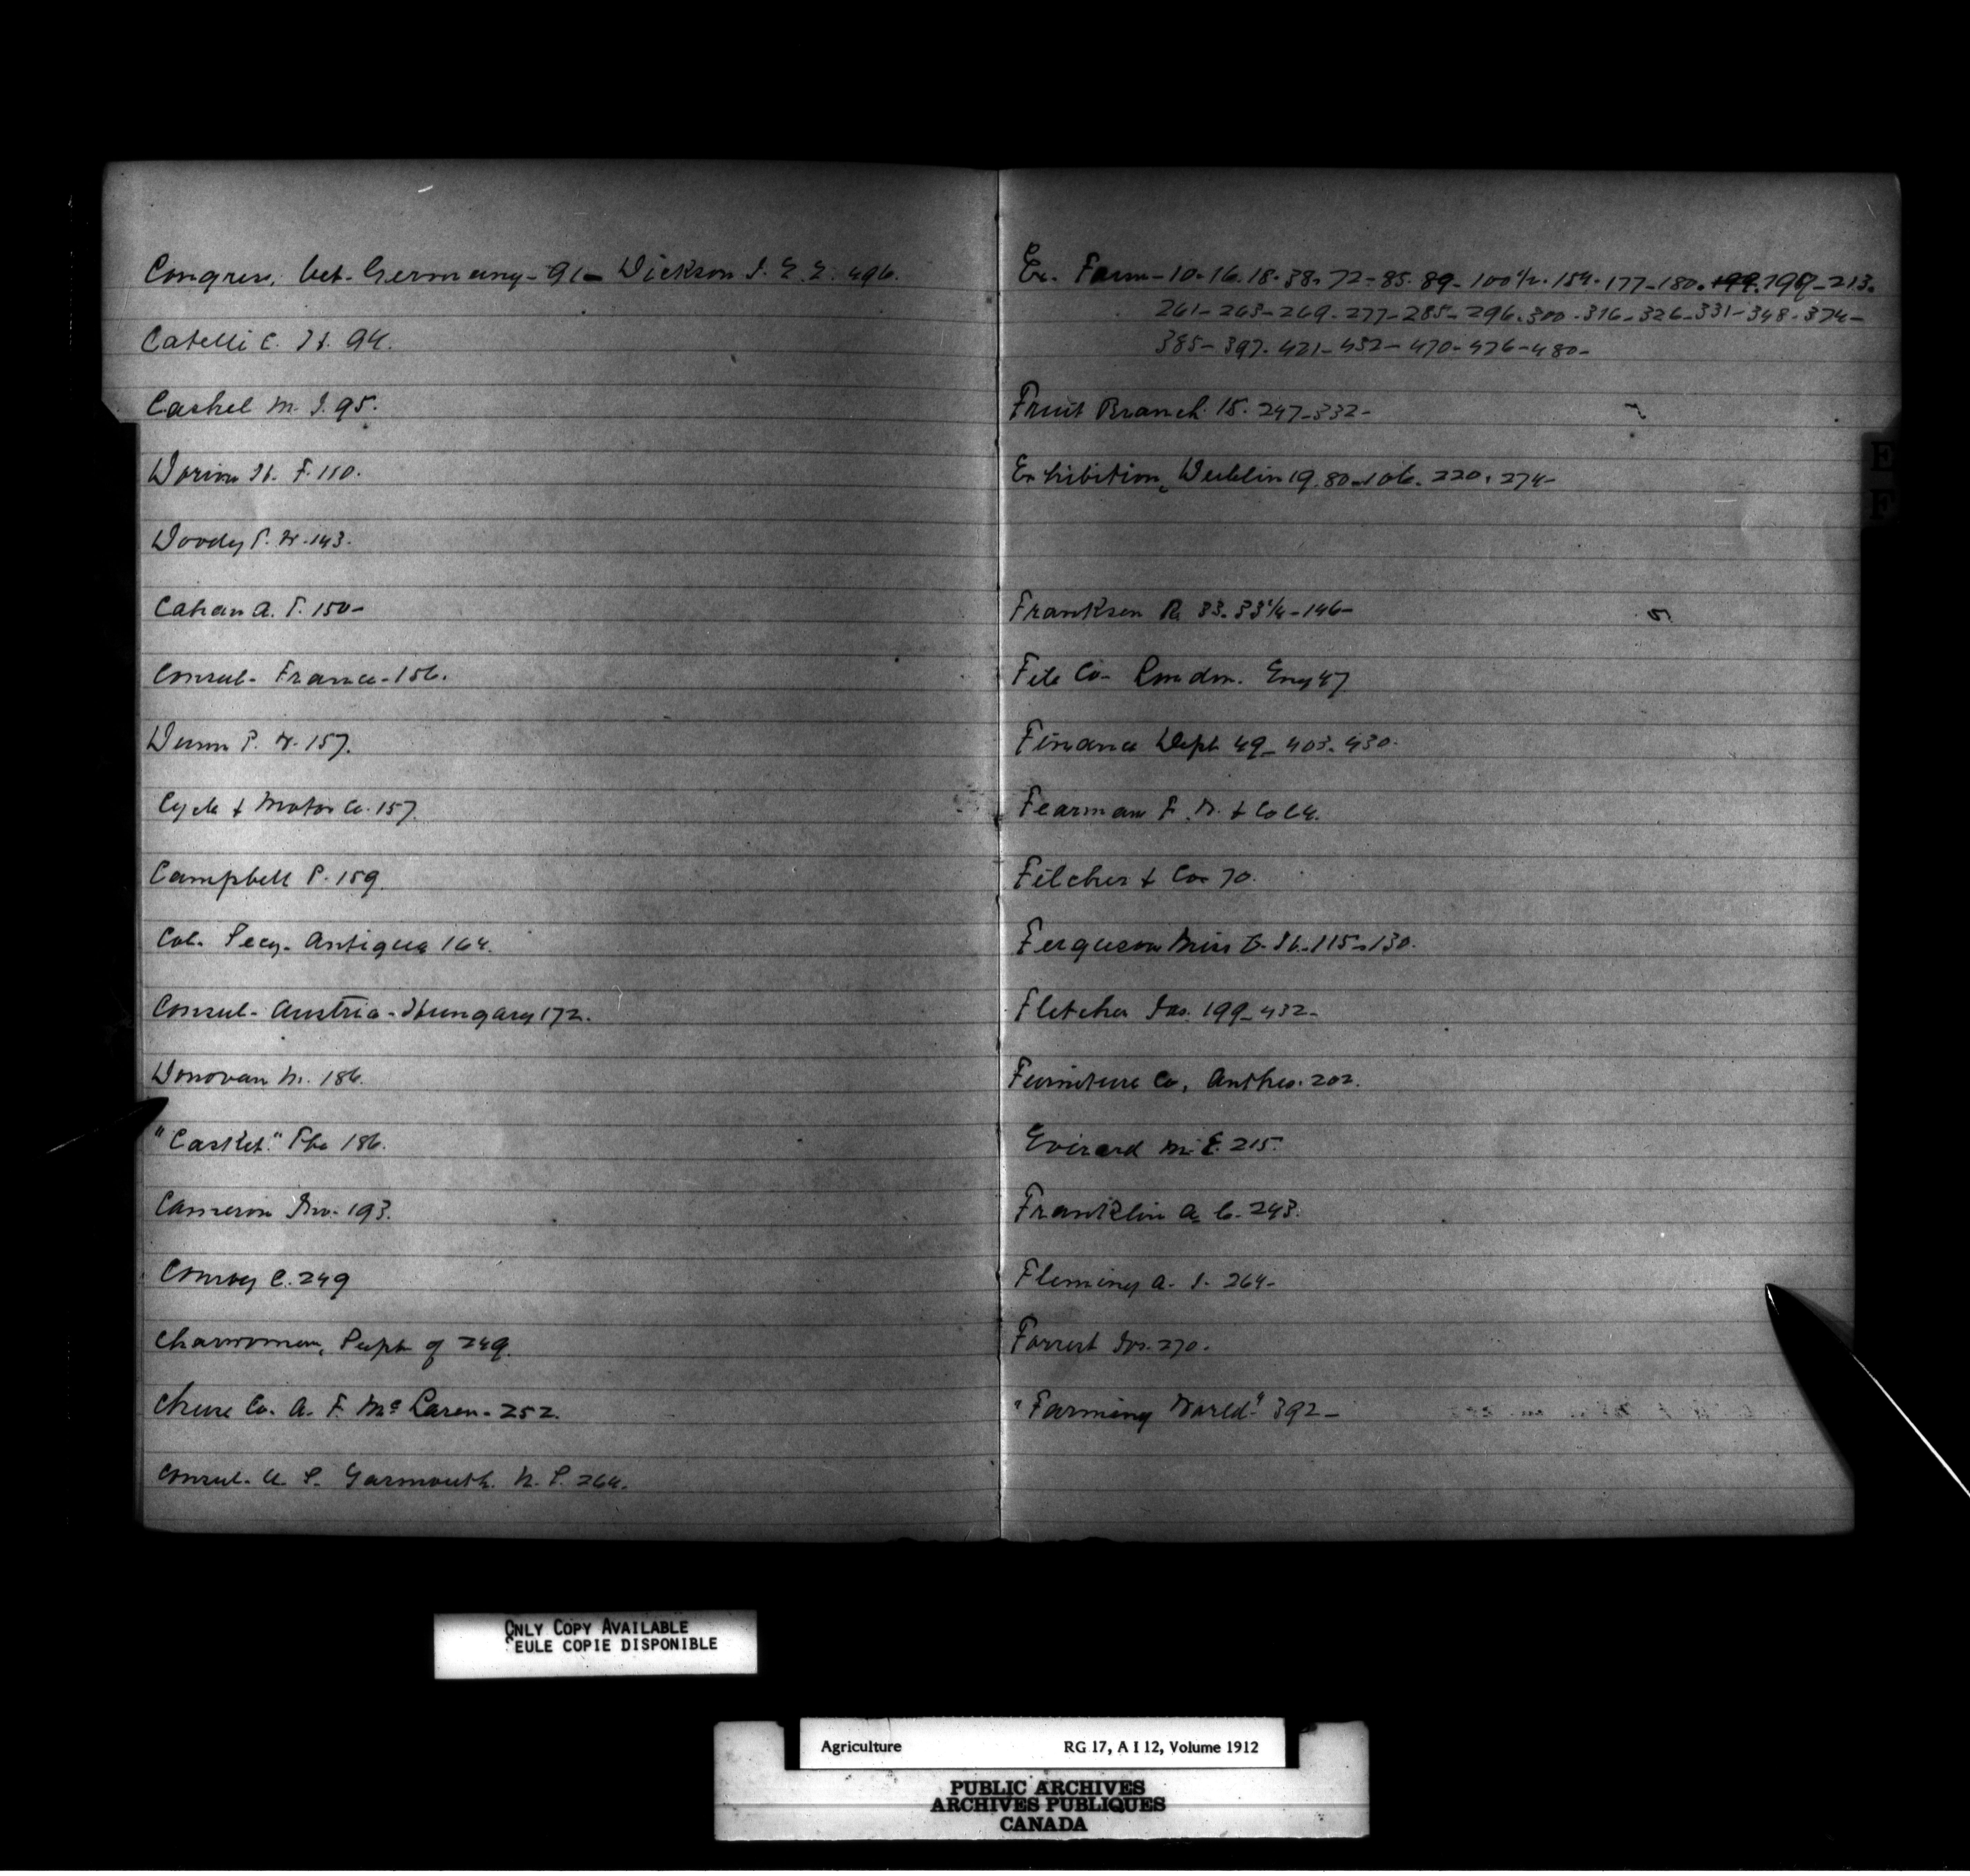 Congress, Vet. Germany - 91 - Dickson J. E. E. 496.
Catelli C. H. 94.
Cashel M. J. 95.
Dorion H. F. 110.
Doody P. W. 143.
Cahan A. T. 150 -
Consul - France - 156.
Dunn P. W. 157.
Cycle & Motor Co. 157.
Campbell P. 159.
Col. Secy. Antigua 164.
Consul - Austria - Hungary 172.
Donovan M. 186.
"Casket." The 186.
Cameron Jno. 193.
Conroy C. 249
Charwomen, Supt of 249.
Cheese Co. A. F. McLaren - 252.
Consul - U. S. Yarmouth. N. S. 264.
Ex. Farm - 10 - 16. 18. 38. 72 - 85. 89 - 100 1/2. 154. 177 - 180. 199. 199 - 213.
261 - 263 - 269. 277 - 285 - 296. 300 - 316 - 326 - 331 - 348 - 374 -
385 - 397. 421 - 452 - 470 - 476 - 480 -
Fruit Branch. 15. 247 - 332 -
Exhibition, Dublin 19. 80 - 106. 220. 274 -
Franksen R. 33. 33 1/2 - 146 -
File Co - London. Eng 47
Finance Dept 49 - 403. 430.
Fearman F. W. & Co 64.
Filcher & Co 70.
Ferguson Miss G. H. 115 - 130.
Fletcher Jas. 199 - 432 -
Furniture Co, Anthes. 202.
Evirard M. E. 215.
Franklin A. C. 243.
Fleming A. J. 264 -
Forrest Jas. 270.
"Farming World" 392 -
E
F
ONLY COPY AVAILABLE
SEULE COPIE DISPONIBLE
Agriculture RG 17, A I 12, Volume 1912
PUBLIC ARCHIVES
ARCHIVES PUBLIQUES
CANADA